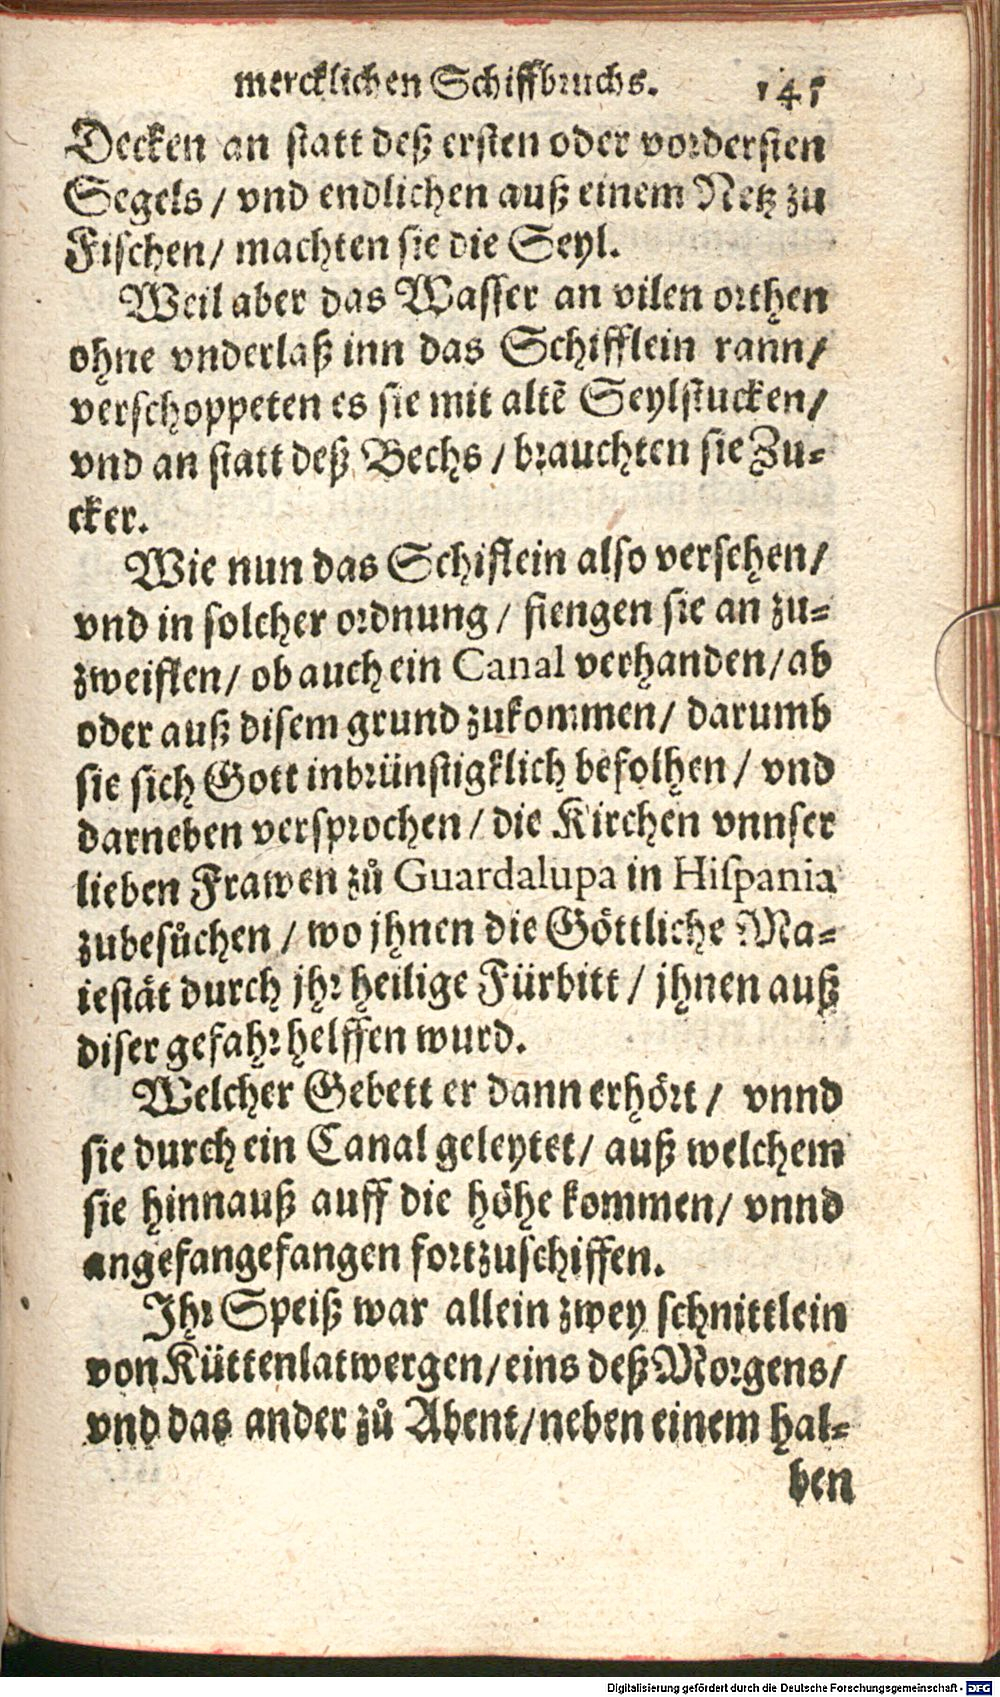 mercklichen Schiffbruchs. 145
Decken an statt deß ersten oder vordersten
Segels / vnd endlichen auß einem Netz zu
Fischen / machten sie die Seyl.
Weil aber das Wasser an vilen orthen
ohne vnderlaß inn das Schifflein rann /
verschoppeten es sie mit altẽ Seylstucken /
vnd an statt deß Bechs / brauchten sie Zu-
cker.
Wie nun das Schiflein also versehen /
vnd in solcher ordnung / fiengen sie an zu-
zweiflen / ob auch ein Canal verhanden / ab
oder auß disem grund zukommen / darumb
sie sich Gott inbrünstigklich befolhen / vnd
darneben versprochen / die Kirchen vnnser
lieben Frawen zů Guardalupa in Hispania
zubesůchen / wo jhnen die Göttliche Ma-
iestät durch jhr heilige Fürbitt / jhnen auß
diser gefahr helffen wurd.
Welcher Gebett er dann erhört / vnnd
sie durch ein Canal geleytet / auß welchem
sie hinnauß auff die höhe kommen / vnnd
angefangefangen fortzuschiffen.
Ihr Speiß war allein zwey schnittlein
von Küttenlatwergen / eins deß Morgens /
vnd das ander zů Abent / neben einem hal-
ben
Digitalisierung gefördert durch die Deutsche Forschungsgemeinschaft - DFG